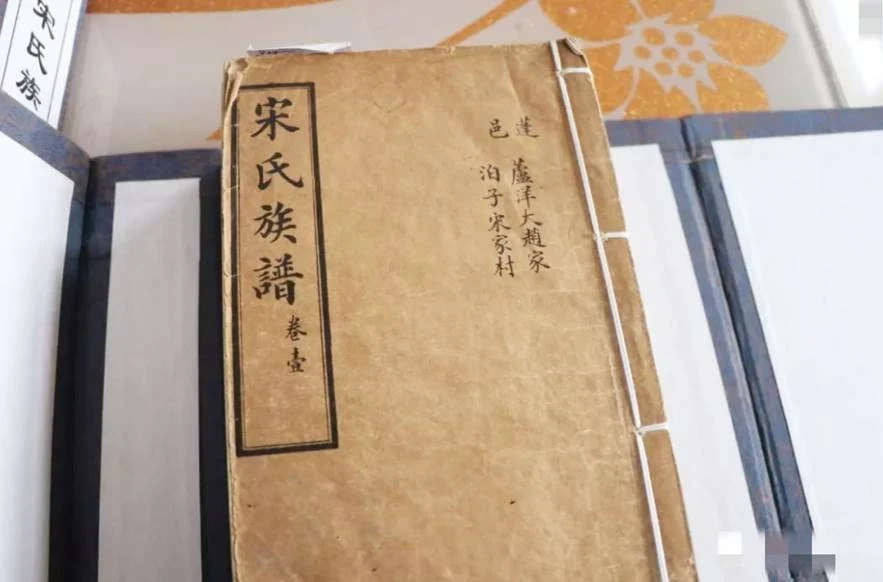 蓬邑
蘆洋大趙家
泊子宋家村
宋氏族譜 卷壹
宋氏族